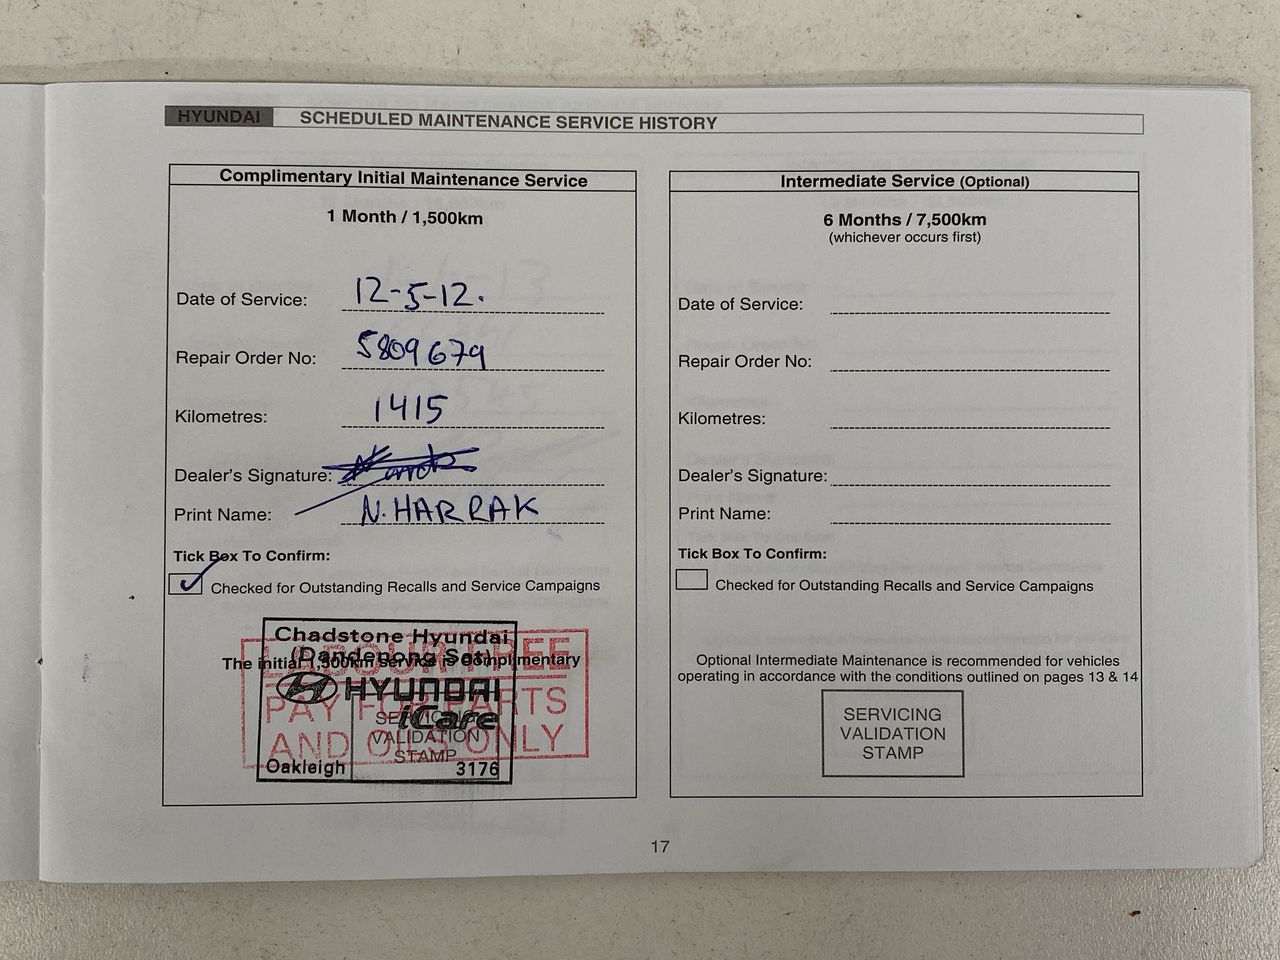 HYUNDAI SCHEDULED MAINTENANCE SERVICE HISTORY
Complimentary Initial Maintenance Service
1 Month / 1,500km
Date of Service: 12-5-12.
Repair Order No: 5809679
Kilometres: 1415
Dealer's Signature:
Print Name: N. HARRAK
Tick Box To Confirm:
Checked for Outstanding Recalls and Service Campaigns
Chadstone Hyundai
(Dandenong Sat)
The initial 1,500km service is Complimentary
LABOUR FREE
HYUNDAI
PAY FOR PARTS
iCare
SERVICING
VALIDATION
AND OILS ONLY
STAMP
Oakleigh 3176
Intermediate Service (Optional)
6 Months / 7,500km
(whichever occurs first)
Date of Service:
Repair Order No:
Kilometres:
Dealer's Signature:
Print Name:
Tick Box To Confirm:
Checked for Outstanding Recalls and Service Campaigns
Optional Intermediate Maintenance is recommended for vehicles
operating in accordance with the conditions outlined on pages 13 & 14
SERVICING
VALIDATION
STAMP
17